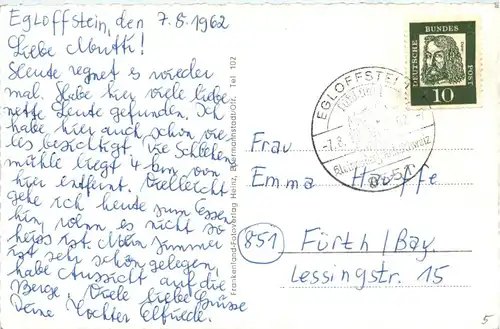 Egloffstein, den 7.8.1962
Liebe Mutti!
Heute regnet es wieder
mal. Habe hier viele liebe
nette Leute gefunden. Ich
habe hier auch schon vie
les besichtigt, die Schlehen
mühle liegt 4 km von
hier entfernt. Vielleicht
gehe ich heute zum Essen
hin, wenn es nicht so
heiss ist. Mein Zimmer
ist sehr schön gelegen,
habe Aussicht auf die
Berge. Viele liebe Grüsse
Deine Tochter Elfriede.
Frankenland-Fotoverlag Heinz, Ebermannstadt/Ofr. Tel 102
DEUTSCHE
BUNDES
POST
10
EGLOFFSTEIN
-7.8.
8551
Frau
Emma Hauffe
(851) Fürth/Bay.
Lessingstr. 15
5